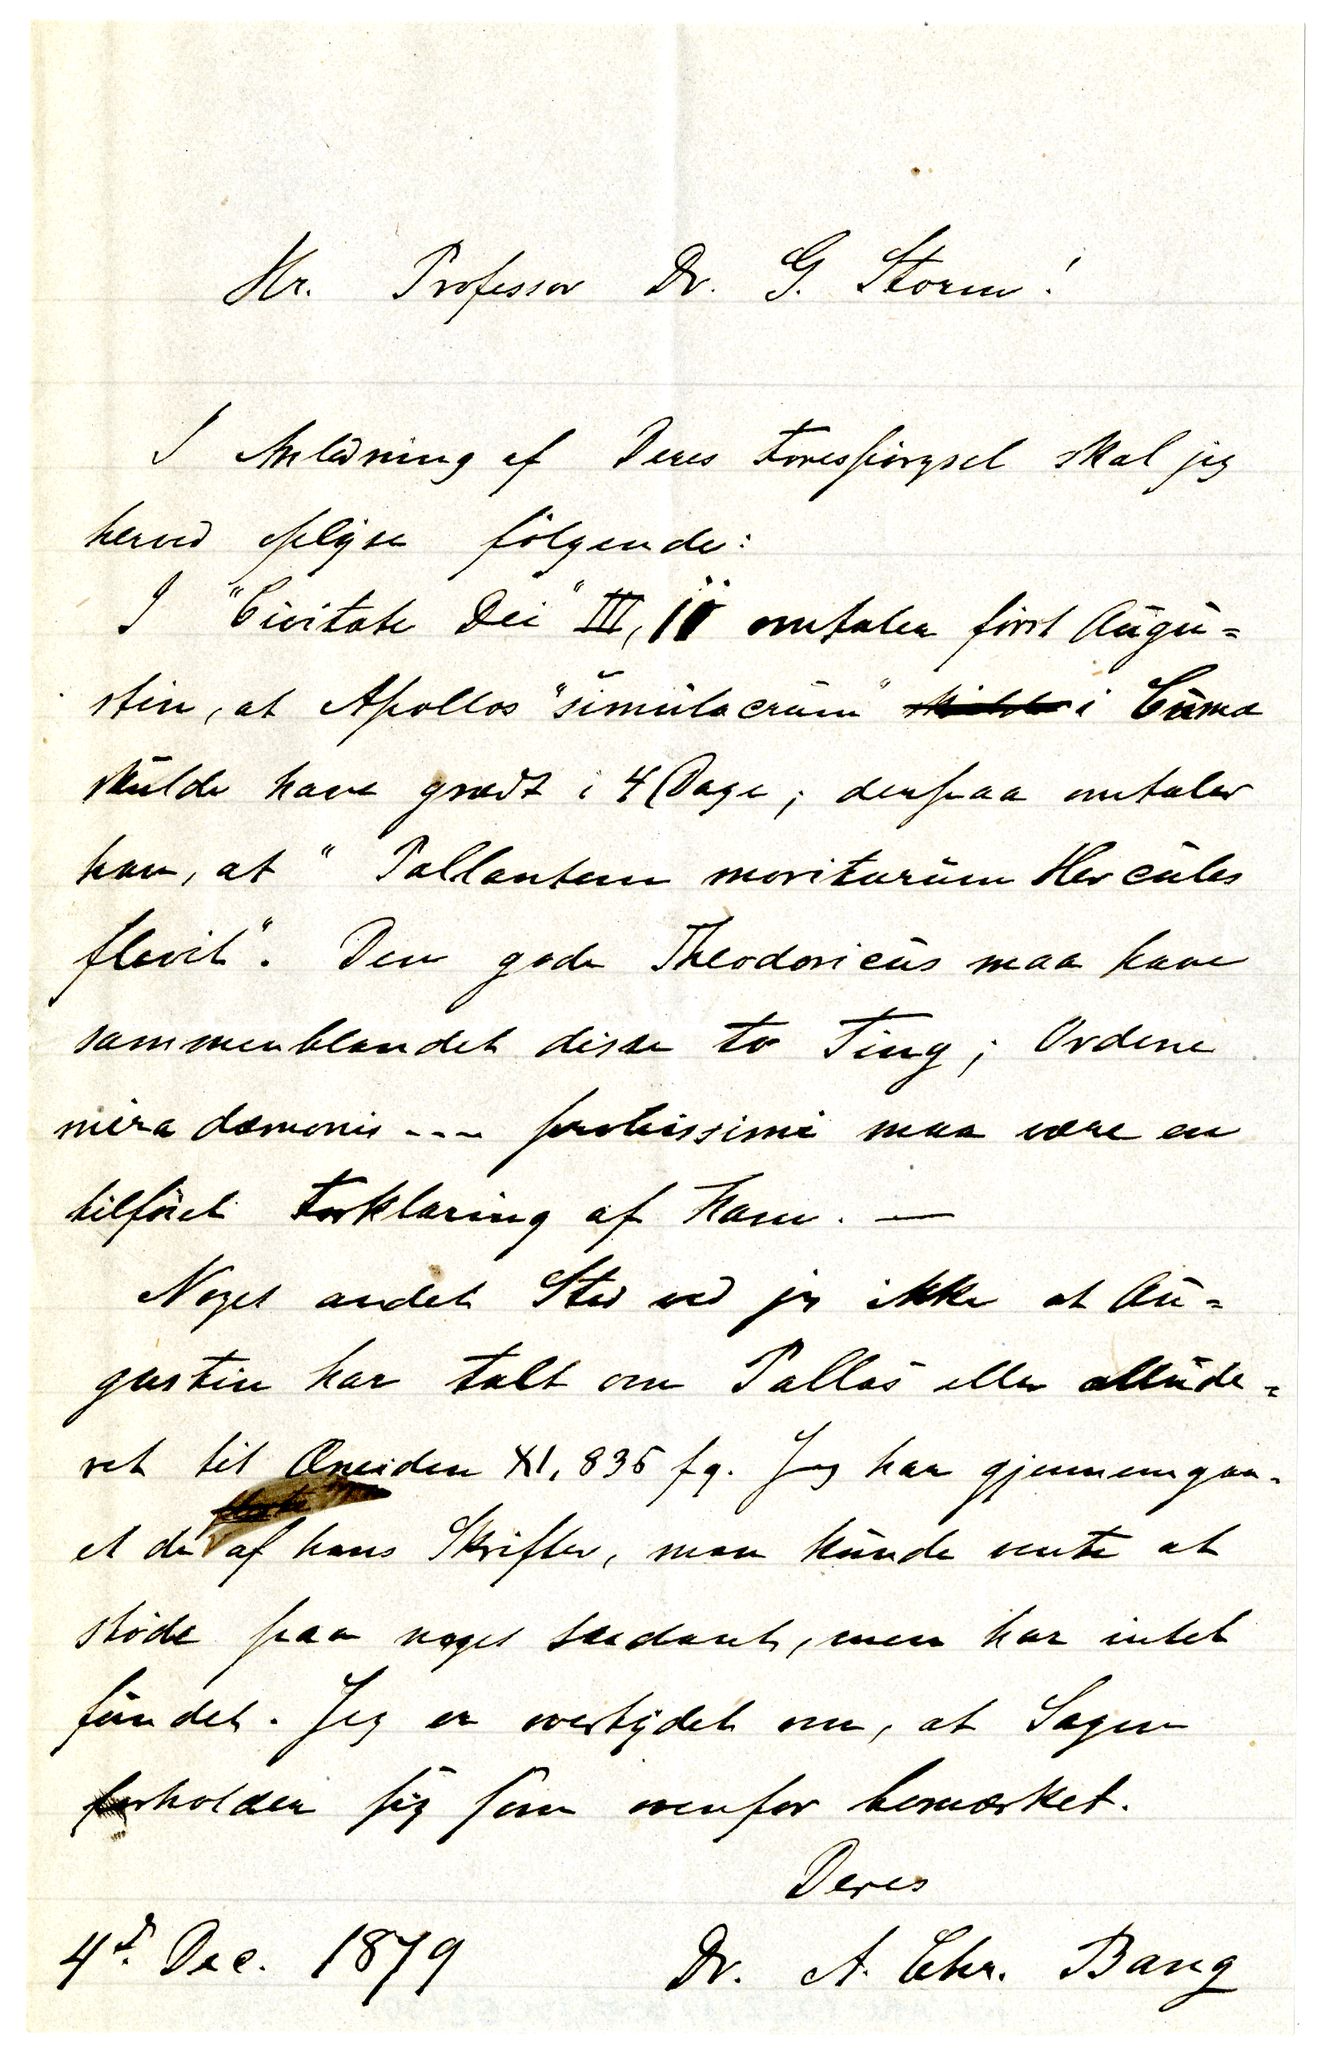 Hr. Professor Dr. G. Storm!
I Anledning af Deres Forespørgsel skal jeg
herved oplyse følgende:
I "Civitate Dei" III, 11 omtaler först Augu=
stin, at Apollos "simulacrum" i Cuma
skulde have grædt i 4 Dage; derpaa omtaler
han, at "Pallantem moriturum Hercules
flevit". Den gode Theodoricus maa have
sammenblandet disse to Ting; Ordene
mira dæmonis --- maa være en
tilföiet Forklaring af ham. —
Noget andet Sted ved jeg ikke at Au=
gustin har talt om Pallas eller allude=
ret til Æneiden XI, 835 fg. Jeg har gjennemgaa=
et de fleste af hans Skrifter, man kunde vente at
stöde paa noget saadant, men har intet
fundet. Jeg er overtydet om, at Sagen
forholder sig som ovenfor bemærket.
Deres
4de Dec. 1879 Dr. A. Chr. Bang